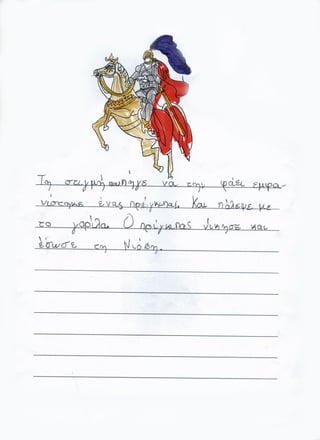 Τη στιγμή που πήγε να την φάει εμφα-
νίστηκε ένας πρίγκιπας. Και πάλεψε με
το γορίλα. Ο πρίγκιπας νίκησε και
έσωσε τη Νιόβη.